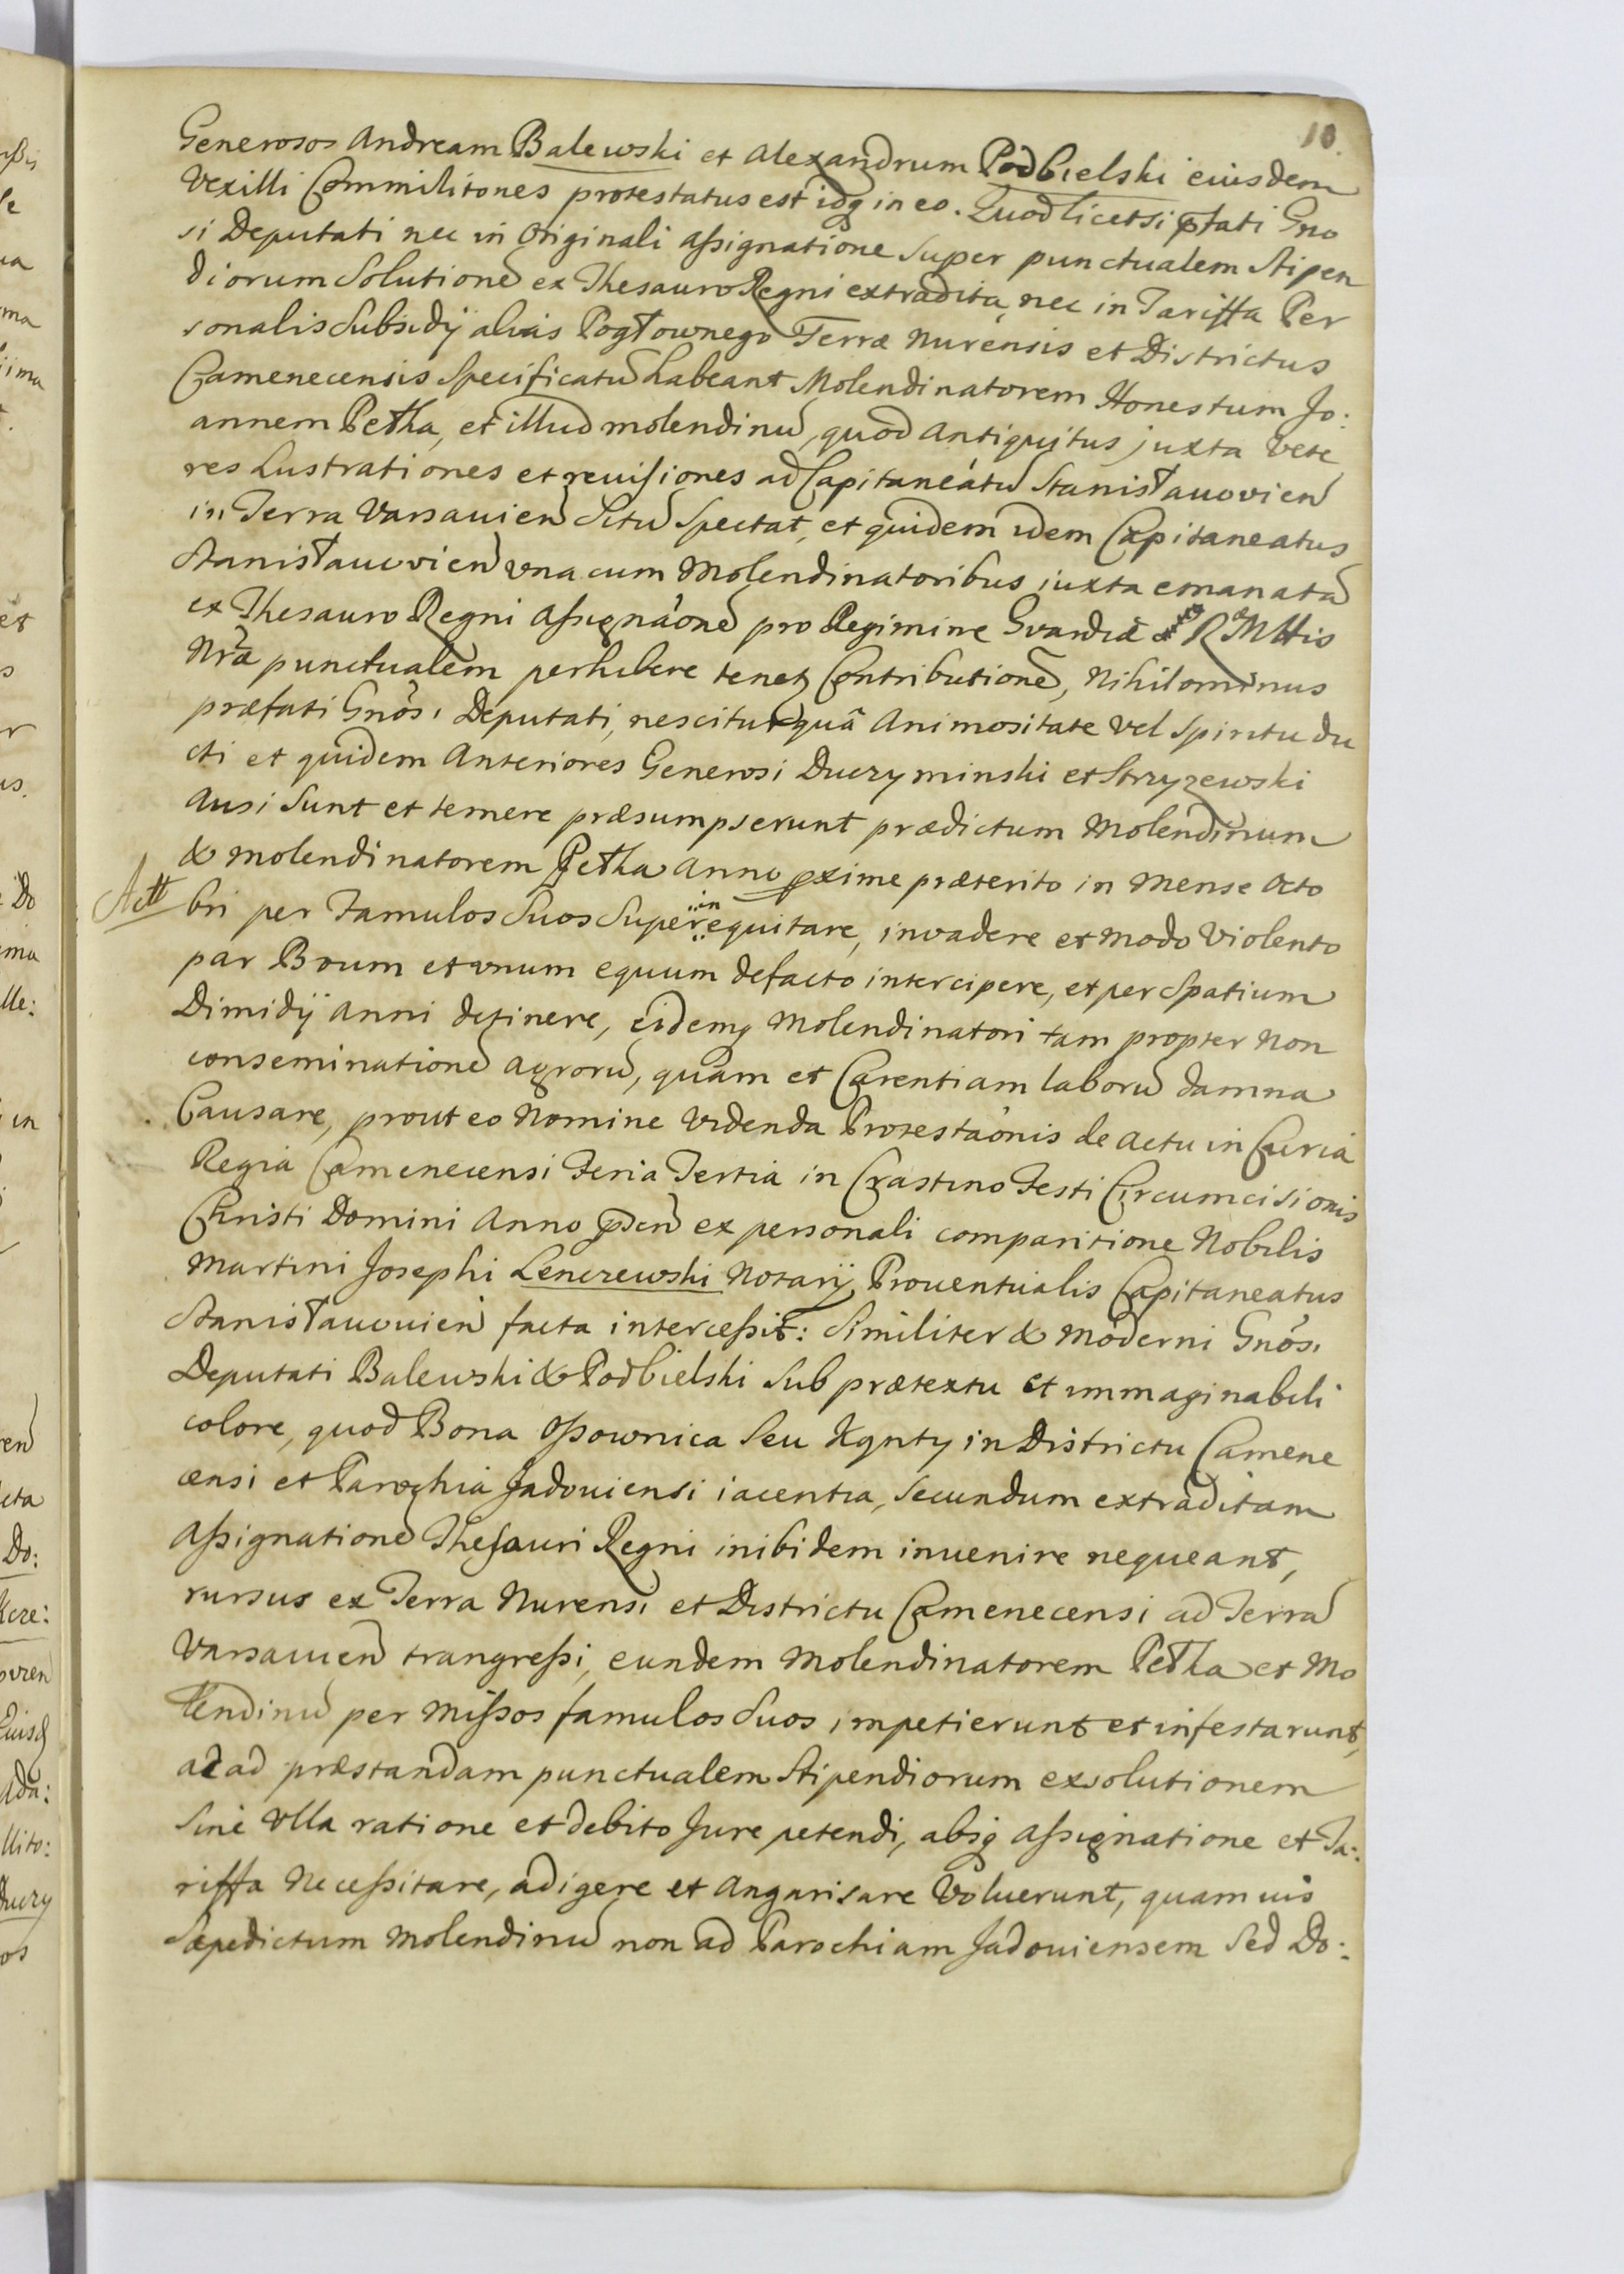 10.
Generosos Andream Balewski et Alexandrum Podbielski eiusdem
Vexilli Commilitones protestatus est idq in eo. Quod licet si ptati Gno
si Deputati nec in Originali Assignatione super punctualem Stipen
diorum Solutione ex Thesauro Regni extradita, nec in Tariffa Per
sonalis Subsidij alias Pogłownego Terræ Nurensis et Districtus
Camenecensis Specificatu habeant Molendinatorem Honestum Jo:
annem Petha, et illud molendinu, quod Antiquitus juxta Vete
res Lustrationes et reuisiones ad Capitaneatu Stanisławovien
in Terra Varsauien Situ Spectat, et quidem idem Capitaneatus
Stanisławovien vna cum Molendinatoribus iuxta emanata
ex Thesauro Regni Assignaone pro Regimine Gvardiæ RMttis
Nræ punctualem perhibere tenet Contributione, Nihilominus
præfati Gnosi Deputati, nescitur quâ Animositate Vel Spiritu du
cti et quidem Anteriores Generosi Duczyminski et Strzyzewski
Ausi Sunt et temere præsumpserunt prædictum Molendinum
& molendinatorem Petha Anno pxime præterito in Mense Octo
Actt
bri per Famulos Suos Super in equitare, invadere et Modo Violento
par Boum et vnum equum defacto intercipere, et per Spatium
Dimidij Anni detinere, eidemq Molendinatori tam propter Non
conseminatione Agroru, quam et Carentiam laboru damna
Causare, prout eo Nomine Videnda Protestaonis de Actu in Curia
Regia Camenecensi Feria Tertia in Crastino Festi Circumcisionis
Christi Domini Anno pden ex personali comparitione Nobilis
Martini Josephi Lenczewski Notarij Prouentualis Capitaneatus
Stanisławouien facta intercessit: Similiter & Moderni Gnosi
Deputati Balewski & Podbielski Sub prætextu et immaginabili
colore, quod Bona Ossownica Seu Kąnty in Districtu Camene
censi et Parochia Jadouiensi iacentia, Secundum extraditam
Assignatione Thesauri Regni inibidem inuenire nequeant,
rursus ex Terra Nurensi et Districtu Camenecensi ad Terra
Varsauien trangressi, eundem Molendinatorem Petha et Mo
lendinu per Missos famulos Suos impetierunt et infestarunt,
ac ad præstandam punctualem Stipendiorum exolutionem
Sine Vlla ratione et debito Jure petendi, absq Assignatione et Ta:
riffa Necessitare, adigere et Angarisare Voluerunt, quamuis
Sæpedictum Molendinu non ad Parochiam Jadouiensem Sed Do: